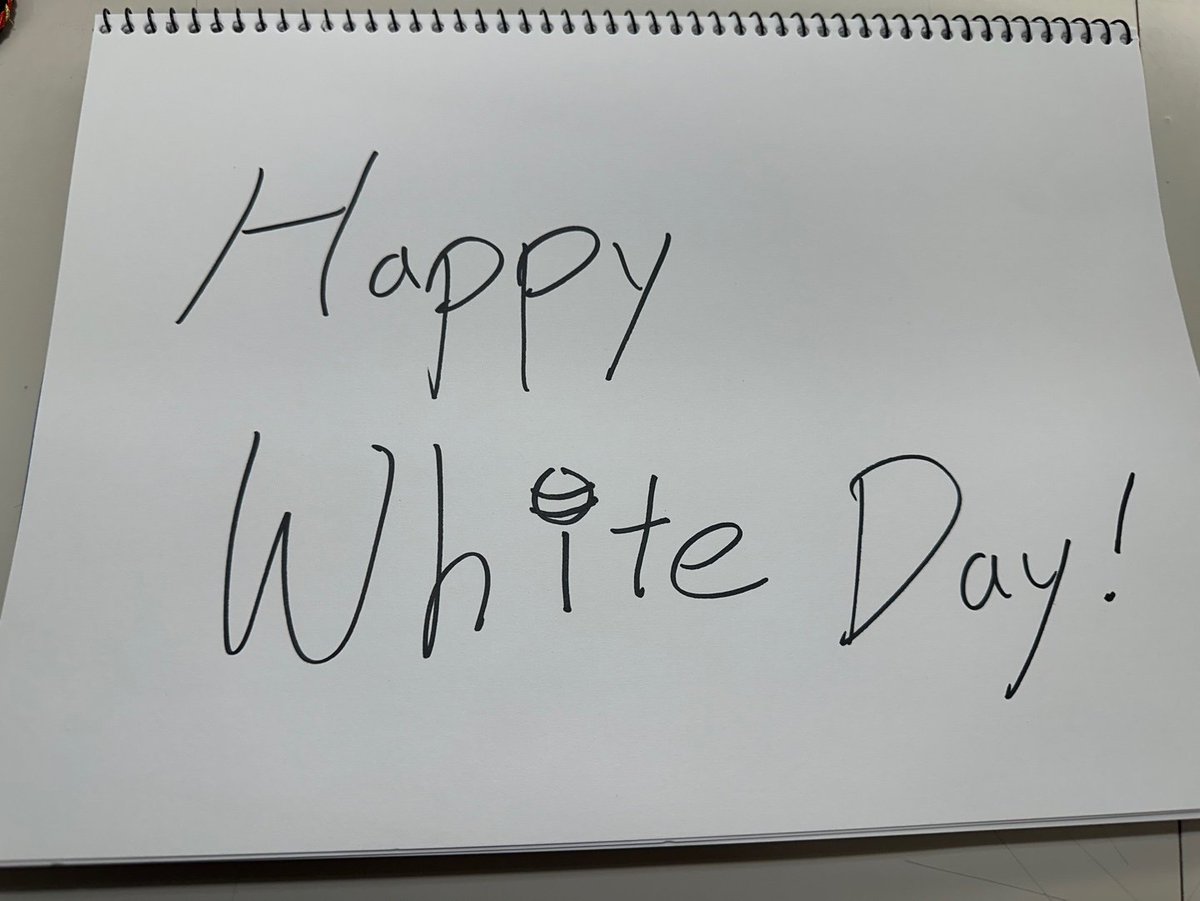 Happy
White Day!